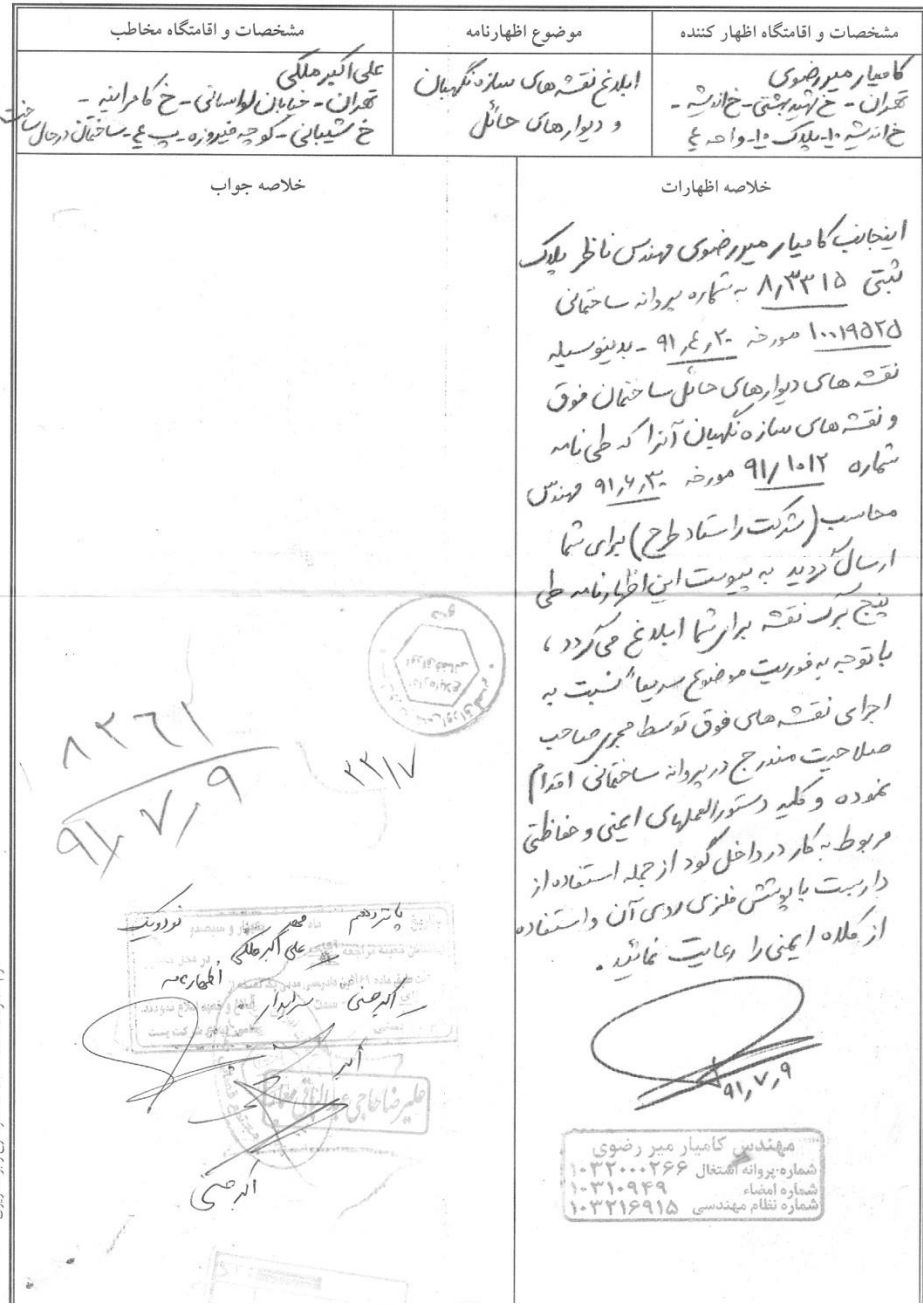 مشخصات و اقامتگاه اظهار کننده
موضوع اظهارنامه
مشخصات و اقامتگاه مخاطب
کامیار میررضوی
تهران - خ شهید بهشتی - خ اندیشه -
خ اندیشه ۱۰ - پلاک ۱۰ - واحد ۴
ابلاغ نقشه های سازه نگهبان
و دیوارهای حائل
علی اکبر ملکی
تهران - خیابان لواسانی - خ کامرانیه -
خ شیبانی - کوچه فیروزه - پ ۴ - ساختمان درحال ساخت
خلاصه اظهارات
اینجانب کامیار میررضوی مهندس ناظر پلاک
ثبتی ۸٫۳۳۱۵ به شماره پروانه ساختمانی
۱۰۰۱۹۵۲۵ مورخه ۹۱٫۴٫۲۰ - بدینوسیله
نقشه های دیوارهای حائل ساختمان فوق
و نقشه های سازه نگهبان آنرا که طی نامه
شماره ۹۱/۱۰۱۲ مورخه ۹۱٫۶٫۳۰ مهندس
محاسب (شرکت راستاد طرح) برای شما
ارسال گردید به پیوست این اظهارنامه طی
پنج برگ نقشه برای شما ابلاغ می گردد ،
با توجه به فوریت موضوع سریعاً نسبت به
اجرای نقشه های فوق توسط مجری صاحب
صلاحیت مندرج در پروانه ساختمانی اقدام
نموده و کلیه دستورالعملهای ایمنی و حفاظتی
مربوط به کار در داخل گود از جمله استفاده از
داربست با پوشش فلزی روی آن و استفاده
از کلاه ایمنی را رعایت نمائید .
۹۱٫۷٫۹
مهندس کامیار میر رضوی
شماره پروانه اشتغال ۱۰۳۲۰۰۰۲۶۶
شماره امضاء ۱۰۳۱۰۹۴۹
شماره نظام مهندسی ۱۰۳۲۱۶۹۱۵
خلاصه جواب
۸۲۶۱
۹۱٫۷٫۹
۲۲/۷
پانزدهم مهر نودویک
علی اکبر ملکی
اظهارنامه
سرایدار
علیرضا حاجی